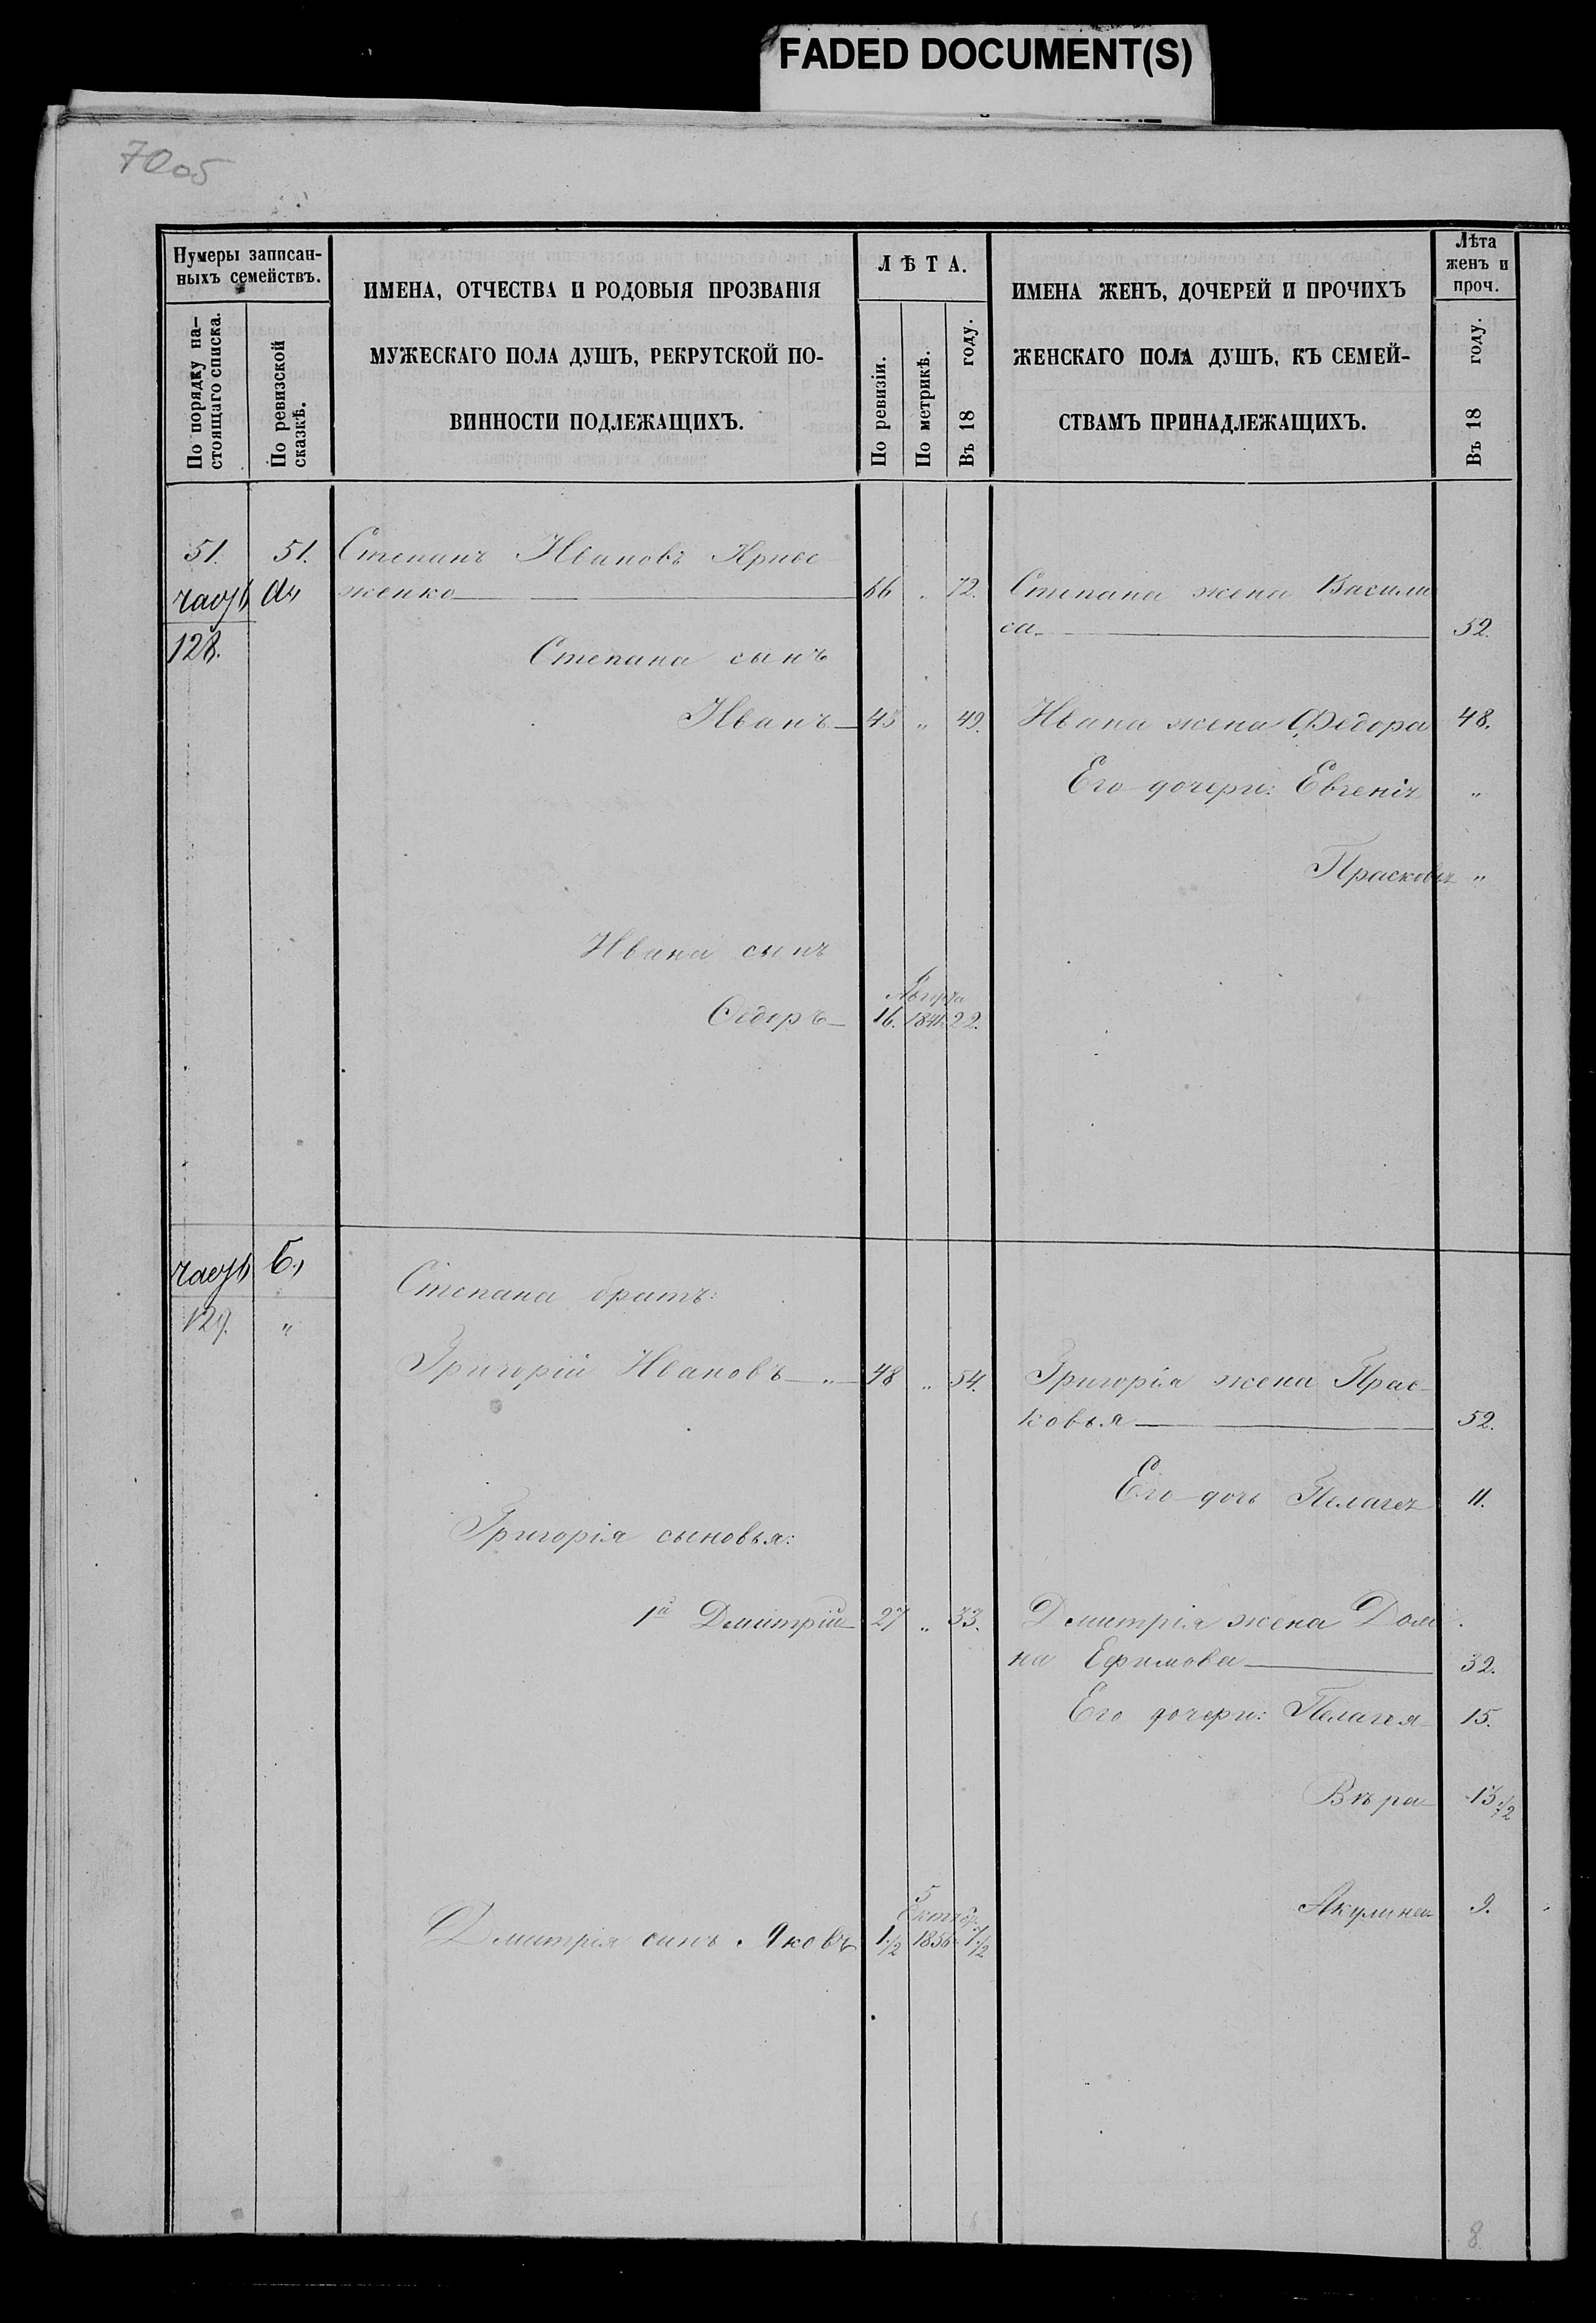 FADED DOCUMENT(S)
7005
Нумеры записан-
ныхъ семействъ.
По порядку на-
стоящаго списка.
По ревизской
сказкѣ.
ИМЕНА, ОТЧЕСТВА И РОДОВЫЯ ПРОЗВАНІЯ
МУЖЕСКАГО ПОЛА ДУШЪ, РЕКРУТСКОЙ ПО-
ВИННОСТИ ПОДЛЕЖАЩИХЪ.
ЛѢТА.
По ревизіи.
По метрикѣ.
Въ 18 году.
ИМЕНА ЖЕНЪ, ДОЧЕРЕЙ И ПРОЧИХЪ
ЖЕНСКАГО ПОЛА ДУШЪ, КЪ СЕМЕЙ-
СТВАМЪ ПРИНАДЛЕЖАЩИХЪ.
Лѣта
женъ и
проч.
Въ 18 году.
51. 51. Степанъ Ивановъ
часть а, женко 66 „ 72. Степана жена Васили
са 52.
128.
Степана сынъ
Иванъ 43 „ 49. Ивана жена Федора 48.
Его дочери: Евгенія „
Прасковья „
Ивана сынъ
6
Августа
Федоръ 16. 1841. 22.
часть б,
129. „
Степана братъ:
Григорій Ивановъ „ 48 „ 54. Григорія жена Прас-
ковья 52.
Его дочь Пелагея 11.
Григорія сыновья:
1й Дмитрій 27 „ 33. Дмитрія жена Дом
на Ефимова 32.
Его дочери: Пелагея 15.
Вѣра 13 1/2
Акулина 9.
5
Октябр.
Дмитрія сынъ Яковъ 1 1/2 1856 7 1/2
8